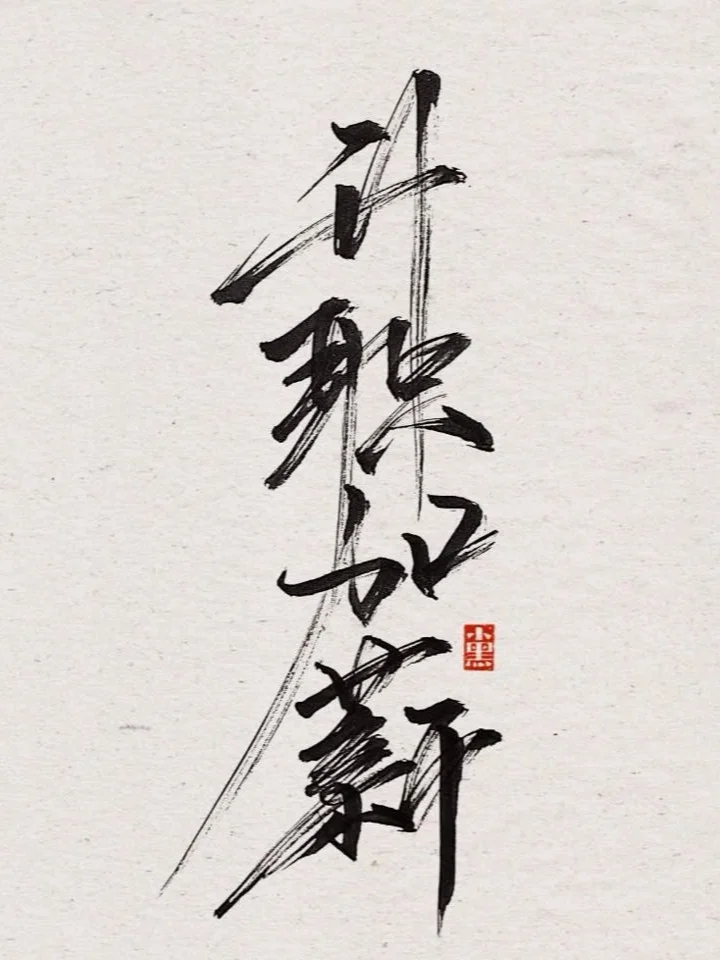 升职加薪
小黑